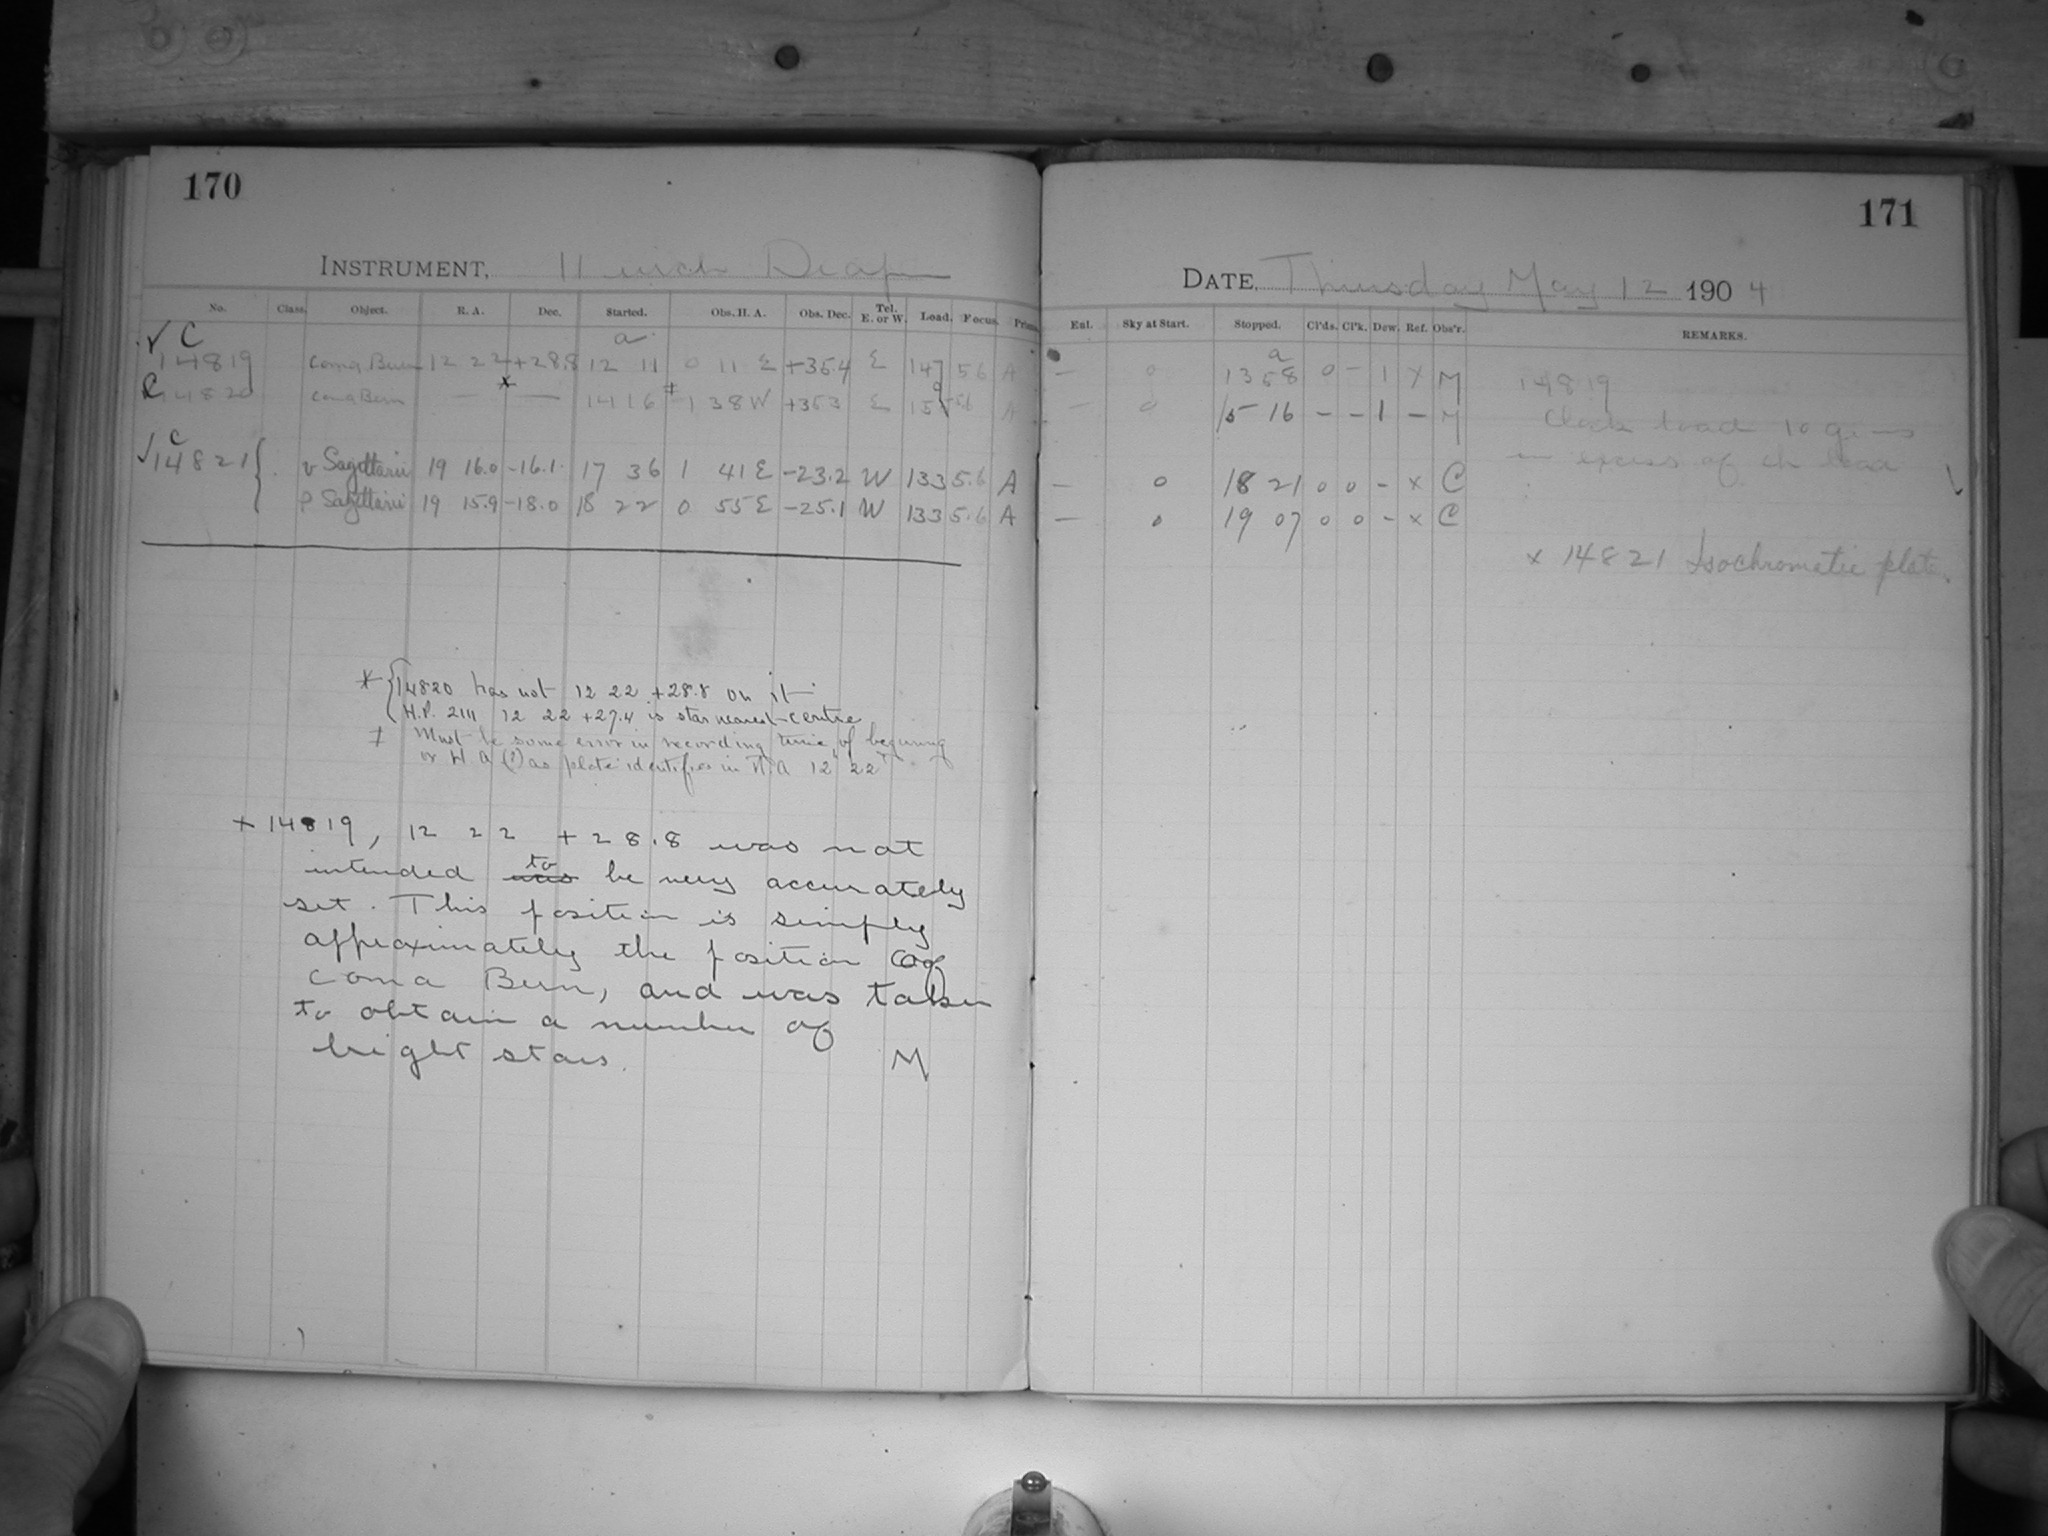 170
INSTRUMENT, 11 inch Draper
No. Class. Object. R. A. Dec. Started. Obs. H. A. Obs. Dec. Tel. E. or W. Load. Focus.
√ C a
14819 Coma Beren 12 22 +28.8 12 11 0 11 E +35.4 E 147 5.6 A
14820 Coma Beren — * — 14 16 ‡ 1 38 W +353 E 5.6 A
√ C
14821 { υ Sagittarii 19 16.0 -16.1 17 36 1 41 E -23.2 W 133 5.6 A
ρ Sagittarii 19 15.9 -18.0 18 22 0 55 E -25.1 W 133 5.6 A
* { 14820 has not 12 22 +28.8 on it
H.P. 2111 12 22 +27.4 is star nearest centre
‡ Must be some error in recording time of beginning
or H A (?) as plate identifies in R.A 12 22
+ 14819, 12 22 +28.8 was not
intended to be very accurately
set. This position is simply
approximately the position of
Coma Beren, and was taken
to obtain a number of
bright stars. M
171
DATE, Thursday May 12 1904
Ent. Sky at Start. Stopped. Cl'ds. Cl'k. Dew. Ref. Obs'r. REMARKS.
a
— 0 13 58 0 — 1 x M 14819
— 0 15 16 — — 1 — M Clock load 10 gr
in excess of ch load
— 0 18 21 0 0 - x C
— 0 19 07 0 0 - x C
x 14821 Isochromatic plate.